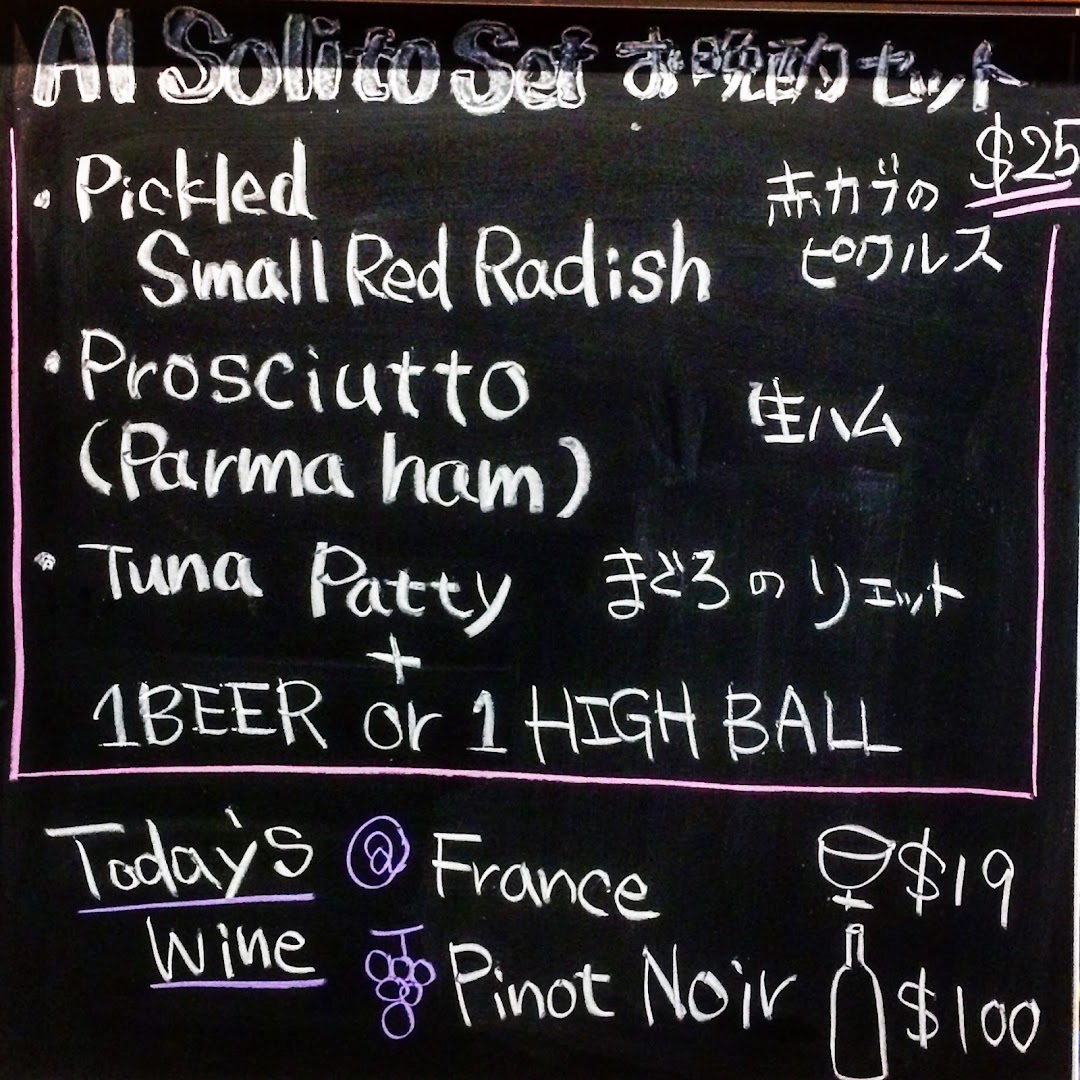 Al Solito Set お晩酌セット
$25
・Pickled
Small Red Radish
赤カブの
ピクルス
・Prosciutto
(Parma ham)
生ハム
・Tuna Patty まぐろのリエット
+
1 BEER or 1 HIGH BALL
Today's
Wine
@ France
Pinot Noir
$19
$100